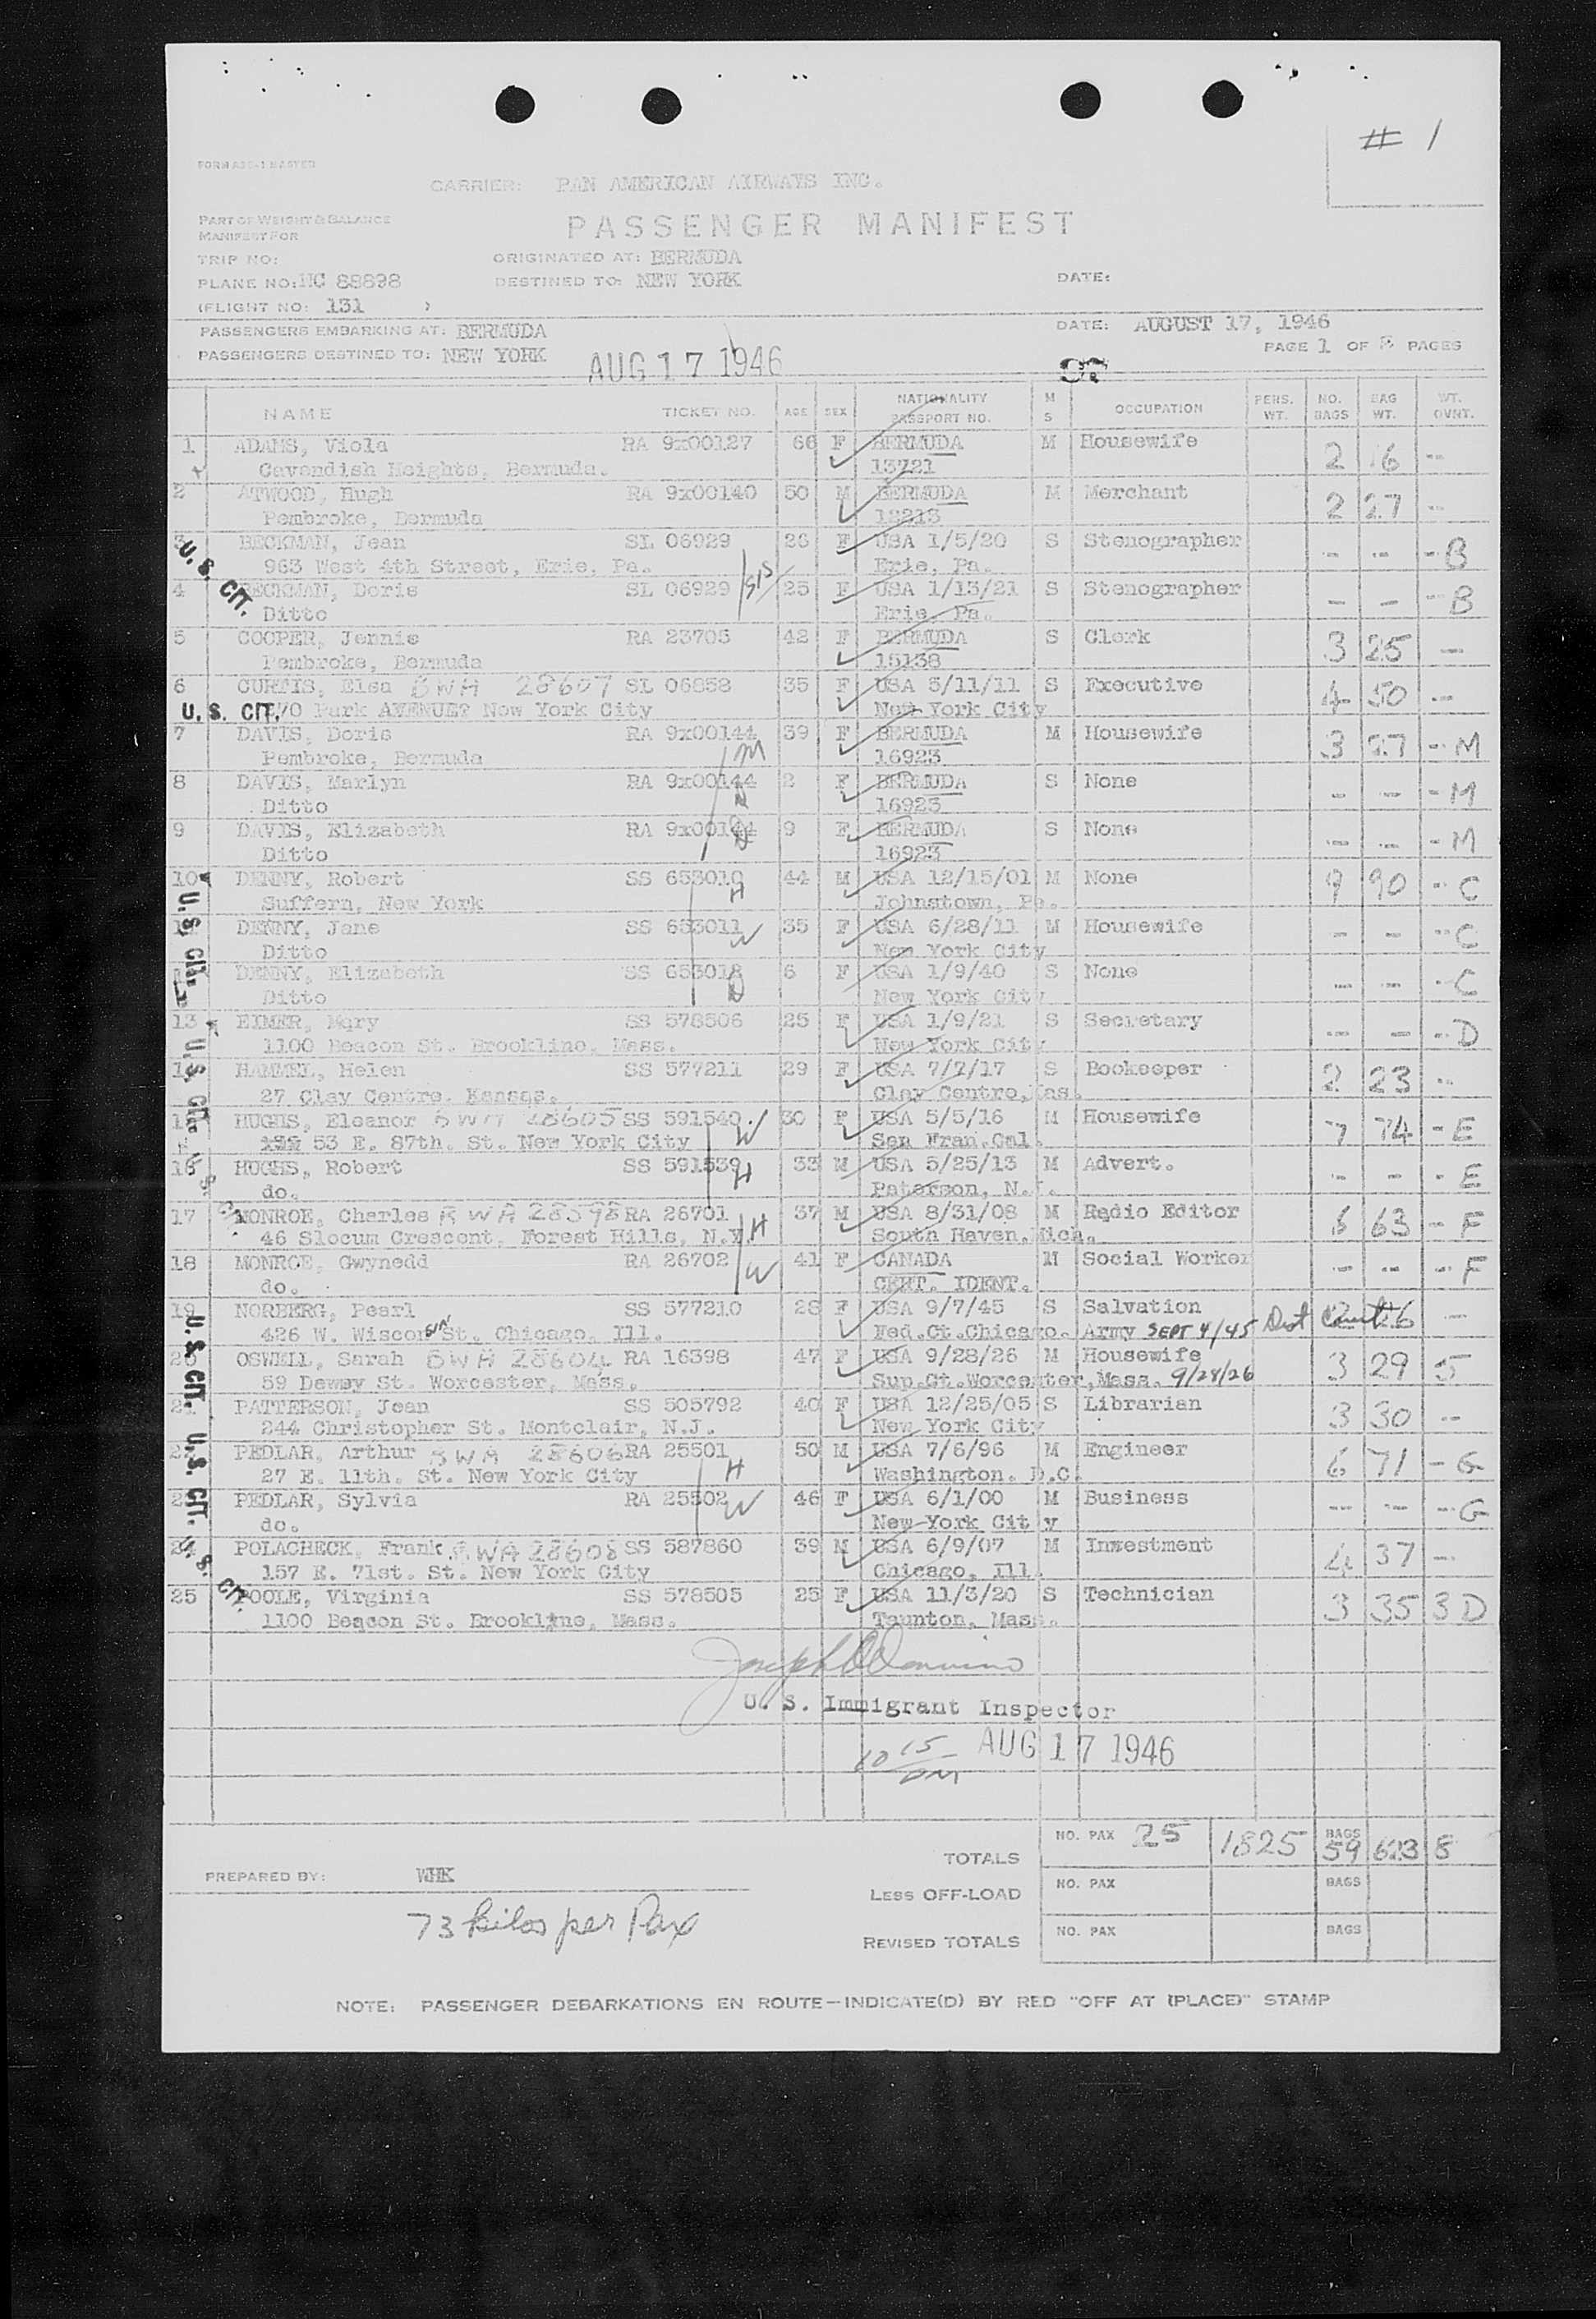 # 1
CARRIER: PAN AMERICAN AIRWAYS INC.
PART OF WEIGHT & BALANCE
MANIFEST FOR
PASSENGER MANIFEST
TRIP NO:
ORIGINATED AT: BERMUDA
PLANE NO: NC 88898
DESTINED TO: NEW YORK
DATE:
(FLIGHT NO: 131 )
PASSENGERS EMBARKING AT: BERMUDA
DATE: AUGUST 17, 1946
PASSENGERS DESTINED TO: NEW YORK
AUG 17 1946
PAGE 1 OF PAGES
NAME TICKET NO. AGE SEX NATIONALITY PASSPORT NO. M S OCCUPATION PERS. WT. NO. BAGS BAG WT. WT. OVNT.
1 ADAMS, Viola RA 9x00127 66 F BERMUDA M Housewife 2 16 -
Cavendish Heights, Bermuda. 13721
2 ATWOOD, Hugh RA 9x00140 50 M BERMUDA M Merchant 2 27 -
Pembroke, Bermuda 12213
3 BECKMAN, Jean SL 06929 26 F USA 1/5/20 S Stenographer - - - B
963 West 4th Street, Erie, Pa. Erie, Pa.
U. S. CIT.
4 BECKMAN, Doris SL 06929 SIS 25 F USA 1/13/21 S Stenographer - - - B
Ditto Erie, Pa.
5 COOPER, Jennie RA 23705 42 F BERMUDA S Clerk 3 25 -
Pembroke, Bermuda 15138
6 CURTIS, Elsa BWA 28607 SL 06858 35 F USA 5/11/11 S Executive 4 50 -
U. S. CIT. 70 Park AVENUE? New York City New York City
7 DAVIS, Doris RA 9x00144 M 39 F BERMUDA M Housewife 3 27 - M
Pembroke, Bermuda 16923
8 DAVIS, Marlyn RA 9x00144 D 2 F BERMUDA S None - - - M
Ditto 16923
9 DAVIS, Elizabeth RA 9x00144 D 9 F BERMUDA S None - - - M
Ditto 16923
10 DENNY, Robert SS 653010 H 44 M USA 12/15/01 M None 9 90 - C
Suffern, New York Johnstown, Pa.
U. S. CIT.
DENNY, Jane SS 653011 W 35 F USA 6/28/11 M Housewife - - - C
Ditto New York City
DENNY, Elizabeth SS 653012 D 6 F USA 1/9/40 S None - - - C
Ditto New York City
13 EIMER, Mary SS 578506 25 F USA 1/9/21 S Secretary - - - D
1100 Beacon St. Brookline, Mass. New York City
U. S. CIT.
14 HAMMEL, Helen SS 577211 29 F USA 7/7/17 S Bookeeper 2 23 -
27 Clay Centre, Kansas. Clay Centre, Kas.
15 HUGHS, Eleanor BWA 28605 SS 591540 W 30 F USA 5/5/16 M Housewife 7 74 - E
53 E. 87th. St. New York City San Fran. Cal.
16 HUGHS, Robert SS 591539 H 33 M USA 5/25/13 M Advert. - - - E
do. Paterson, N.J.
17 MONROE, Charles BWA 28598 RA 26701 H 37 M USA 8/31/08 M Radio Editor 6 63 - F
46 Slocum Crescent, Forest Hills, N.Y. South Haven, Mich.
18 MONROE, Gwynedd RA 26702 W 41 F CANADA M Social Worker - - - F
do. CERT. IDENT.
19 NORBERG, Pearl SS 577210 28 F USA 9/7/45 S Salvation 2 26 -
426 W. Wisconsin St. Chicago, Ill. Fed. Ct. Chicago. Army SEPT 4/45 Dist Court
U. S. CIT.
20 OSWELL, Sarah BWA 28604 RA 16398 47 F USA 9/28/26 M Housewife 3 29 5
59 Dewey St. Worcester, Mass. Sup. Ct. Worcester, Mass. 9/28/26
21 PATTERSON, Jean SS 505792 40 F USA 12/25/05 S Librarian 3 30 -
244 Christopher St. Montclair, N.J. New York City
22 PEDLAR, Arthur BWA 28606 RA 25501 H 50 M USA 7/6/96 M Engineer 6 71 - G
27 E. 11th. St. New York City Washington. D.C.
U. S. CIT.
23 PEDLAR, Sylvia RA 25502 W 46 F USA 6/1/00 M Business - - - G
do. New York City
24 POLACHECK, Frank BWA 28608 SS 587860 39 M USA 6/9/07 M Investment 4 37 -
157 E. 71st. St. New York City Chicago, Ill.
U. S. CIT.
25 POOLE, Virginia SS 578505 25 F USA 11/3/20 S Technician 3 35 3 D
1100 Beacon St. Brookline, Mass. Taunton, Mass.
U. S. Immigrant Inspector
10 15 AUG 17 1946
NO. PAX 25 1825 BAGS 59 623 8
TOTALS
PREPARED BY: WHK
LESS OFF-LOAD NO. PAX BAGS
73 kilos per Pax
REVISED TOTALS NO. PAX BAGS
NOTE: PASSENGER DEBARKATIONS EN ROUTE—INDICATE(D) BY RED "OFF AT (PLACE)" STAMP